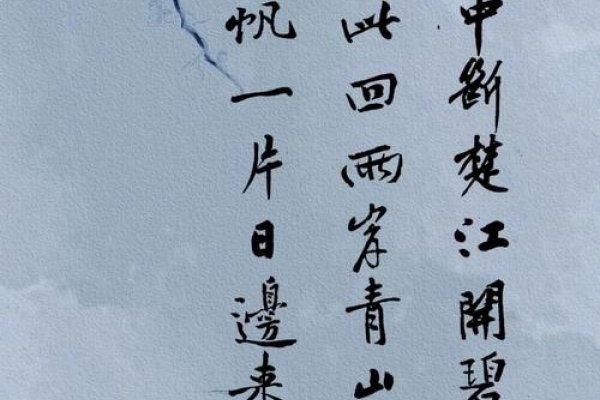 中斷楚江開碧
此回兩岸青山
帆一片日邊来